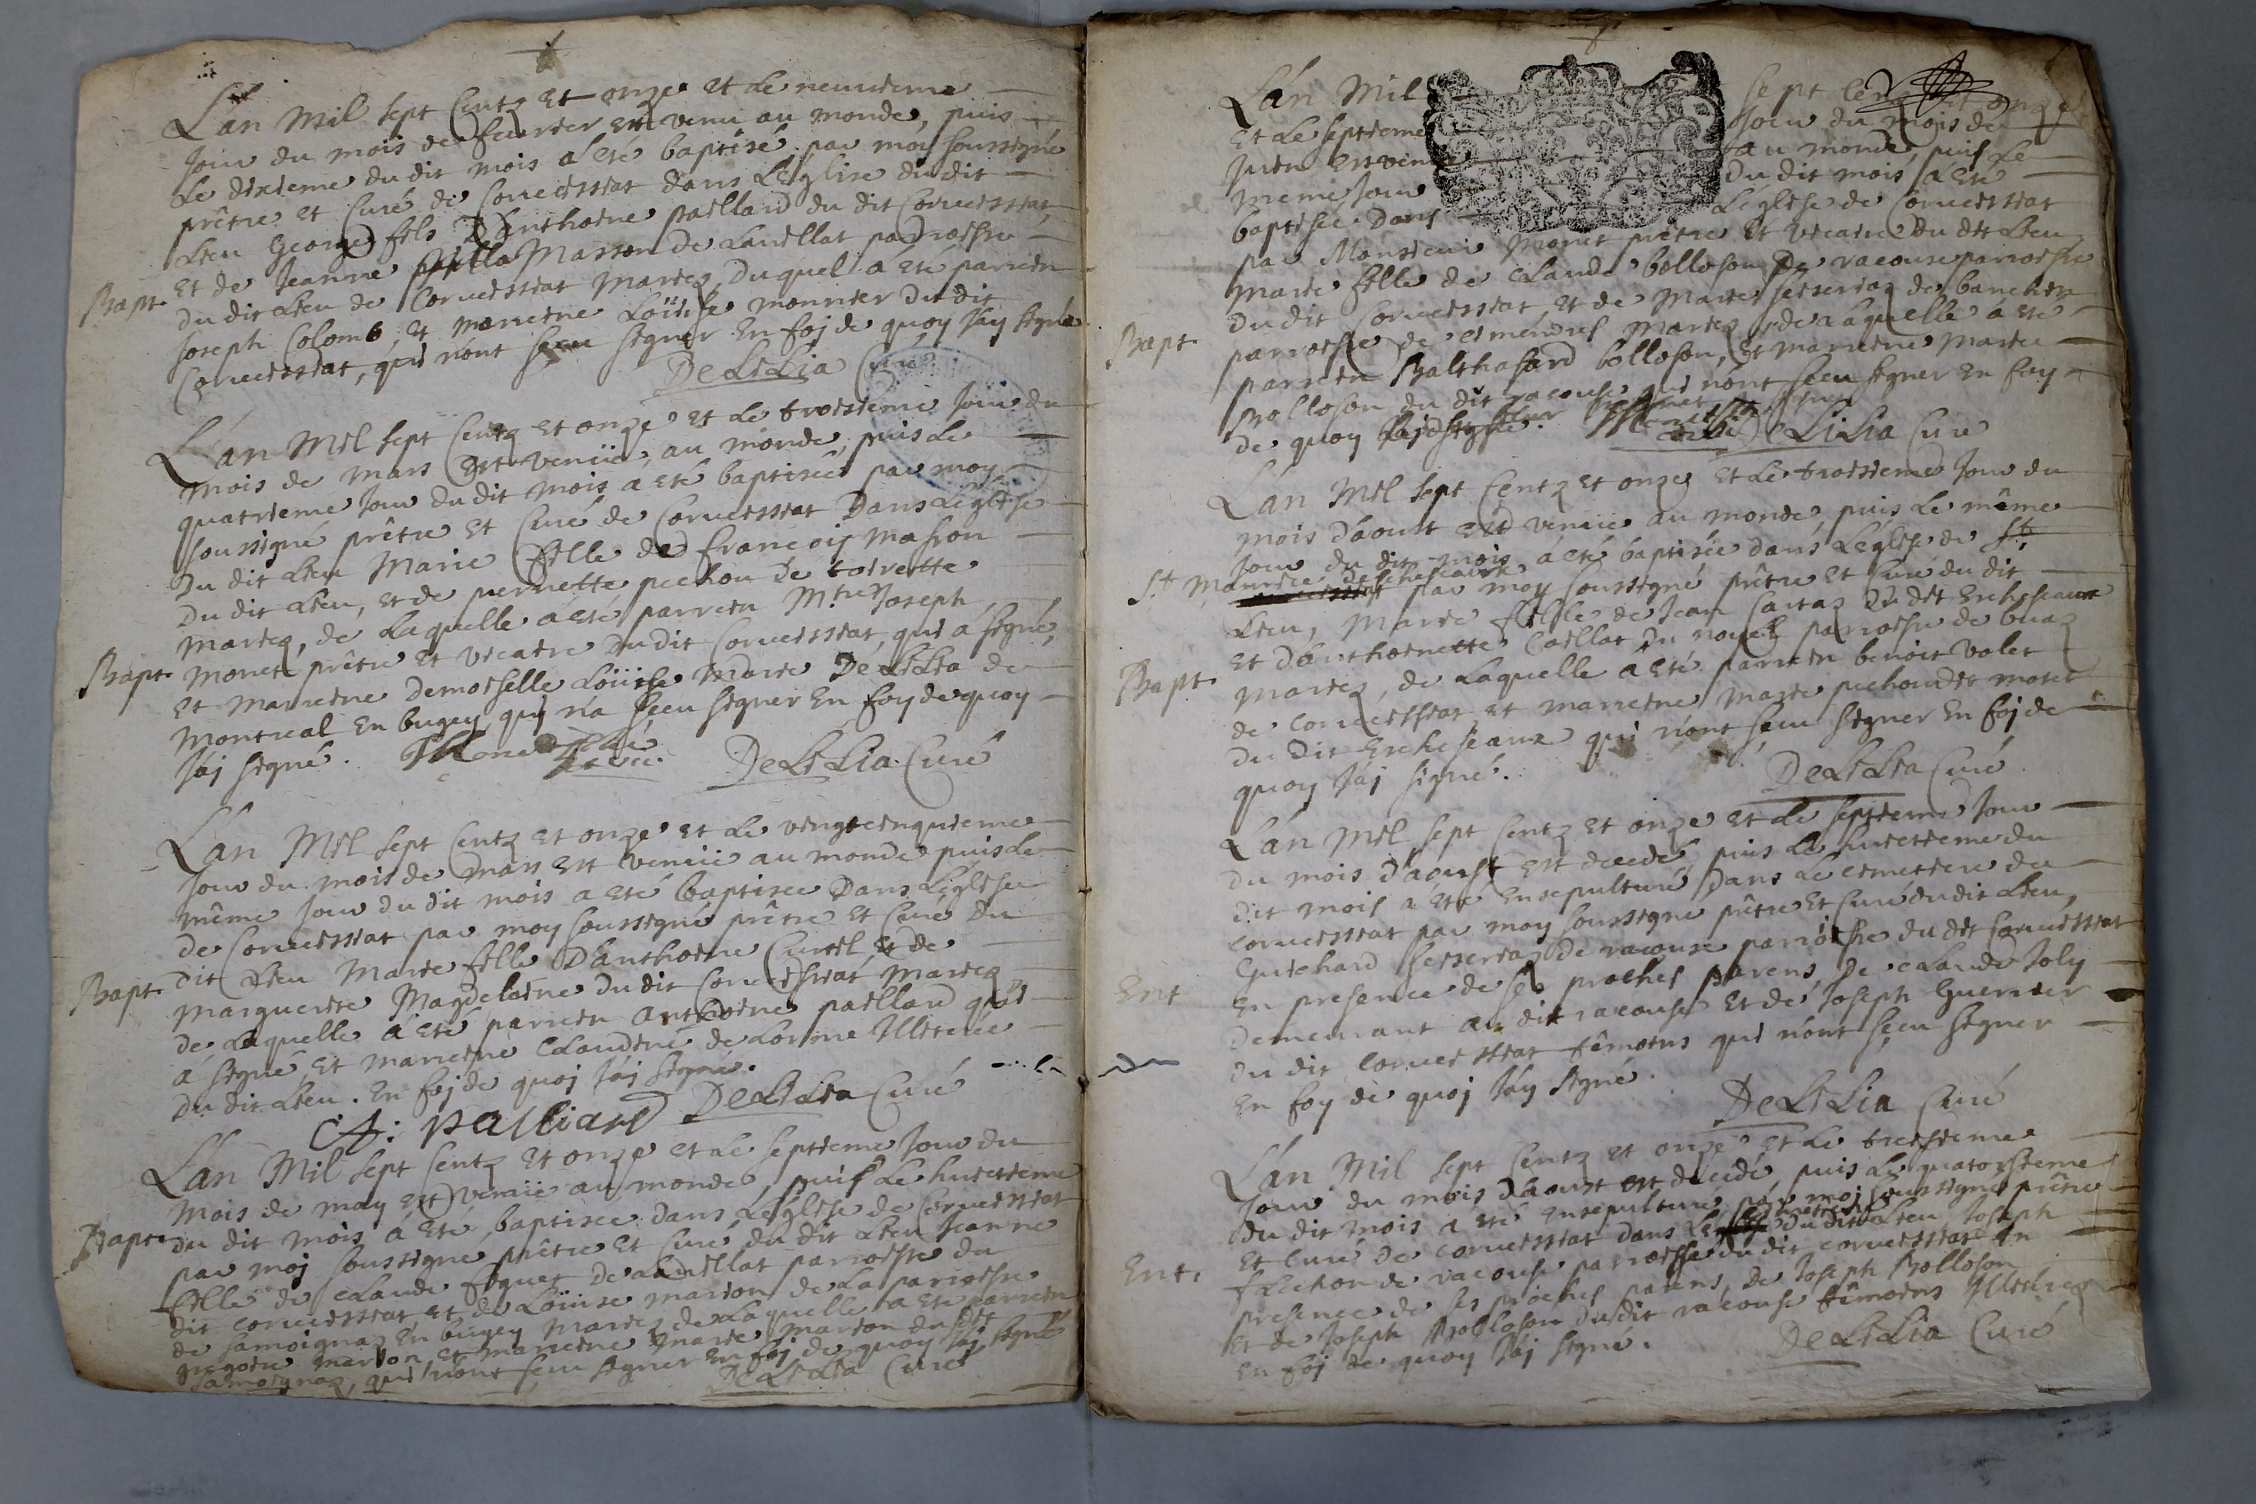 L'an Mil sept Centz et onze et Le neuvieme
Jour du mois de feuvrier est venu au monde, puis
Le dixieme du dit mois a eté baptisé par moy soussigné
prêtre et Curé de Corveissiat dans L'église du dit
Lieu George fils D'Anthoine paillard du dit Corveissiat,
Et de Jeanne Masson de Lavillat parroisse
Bapt
du dit Lieu de Corveissiat Mariez, Duquel a eté parrein
Joseph Colomb, et marreine Loüise monnier du dit
Corveissiat, qui n'ont sceu signer En foj de quoy J'ay signé
DeLiLia Curé
L'an Mil sept Centz et onze et Le troisieme Jour du
mois de mars Est venüe au monde, puis Le
quatrieme Jour du dit mois a eté baptisée par moy
soussigné prêtre et Curé de Corveissiat Dans L'église
Du dit Lieu Marie fille de francois mason
Du dit Lieu, et de pernette pechou De toirette
Mariez, de Laquelle a eté parrein Joseph
Bapt
Monet prêtre et vicaire du dit Corveissiat, qui a signé,
et marreine Demoiselle Loüise Marie DeLiLia de
Montreal En bugey qui na sceu signer En foy de quoy
J'aj signé. Monet DeLiLia Curé
L'an Mil sept Centz et onze et Le vingtcinquieme
Jour du mois de mars est venüe au monde puis Le
même Jour du dit mois a eté baptisée Dans L'église
De Corveissiat par moy soussigné prêtre et Curé Du
Bapt
dit Lieu Marie fille D'anthoine Curtil et de
Marguerite Magdeleine du dit Corveissiat Mariez
de Laquelle a eté parrein Anthoine paillard qui
a signé, et marreine Claudine de Lorme Illiterée
du dit Lieu. En foj de quoj J'aj signé.
A: palliard DeLiLia Curé
L'an Mil sept Centz et onze et Le septieme Jour du
mois de may est venüe au monde, puis Le huictieme
Bapt
du dit mois a eté baptisée dans L'église de Corveissiat
par moj soussigné prêtre et Curé du dit Lieu Jeanne
fille de Claude de Lavillat parroisse du
dit Corveissiat, et de Loüise marion de La parroisse
de Samoignaz En bugey Mariez de Laquelle a eté parrein
gregoire marion et marreine marie marion du dit
Samoignaz, qui n'ont sceu signer En foj de quoy J'aj signé
DeLiLia Curé
L'an Mil sept Centz et onze
Et Le septieme Jour du mois de
Juin Est venüe au monde, puis Le
meme Jour Du dit mois a eté
baptisée Dans L'église de Corveissiat
par Monsieur Monet prêtre et vicaire Du dit Lieu
Marie fille de Claude bolloson de racouse parroisse
Du dit Corveissiat, et de Marie de banchin
Bapt
parroisse de Mariez, de Laquelle a eté
parrein Balthasard bolloson, et marreine Marie
Bolloson du dit racouse qui n'ont sceu signer En foy
de quoy DeLiLia Curé
L'an Mil sept Centz et onze et Le troisieme Jour du
mois d'aoust est venüe au monde, puis Le même
Jour du dit mois a eté baptisée dans L'église de St
St Maurice par moy soussigné prêtre et Curé du dit
Lieu, Marie fille de Jean Cartaz du dit Echeseaux
Et D'anthoinette Caillat Du parroisse de buaz
Bapt
Mariez, de Laquelle a eté parrein benoit volet
de Corveissiat, et marreine Marie
du Dit Echeseaux qui n'ont sceu signer En foj de
quoy J'aj signé.
DeLiLia Curé
L'an Mil sept Centz et onze et Le septieme Jour
Du mois D'aoust est decedé, puis Le huictieme du
dit mois a eté Ensepulturé Dans Le cimetiere de
Corveissiat par moy soussigné prêtre et Curé du dit Lieu,
Guichard de racouse parroisse du dit Corveissiat
Ent
En presence de ses proches parens, De Claude Joly
Demeurant au dit racouse et de Joseph Guerrier
Du dit Corveissiat têmoins qui n'ont sceu signer
En foy de quoj J'ay signé.
DeLiLia Curé
L'an Mil sept Centz et onze et Le treisieme
Jour du mois D'aoust est decedé, puis Le quatorsieme
du dit mois a eté Ensepulturé par moj soussigné prêtre
Et Curé de Corveissiat Dans Le cimetiere du dit Lieu, Joseph
Ent.
de racouse parroisse du dit Corveissiat En
presence de ses proches parens, De Joseph Bolloson
Et de Joseph Bolloson du dit racouse têmoins Illiterez
En foj de quoy J'aj signé.
DeLiLia Curé